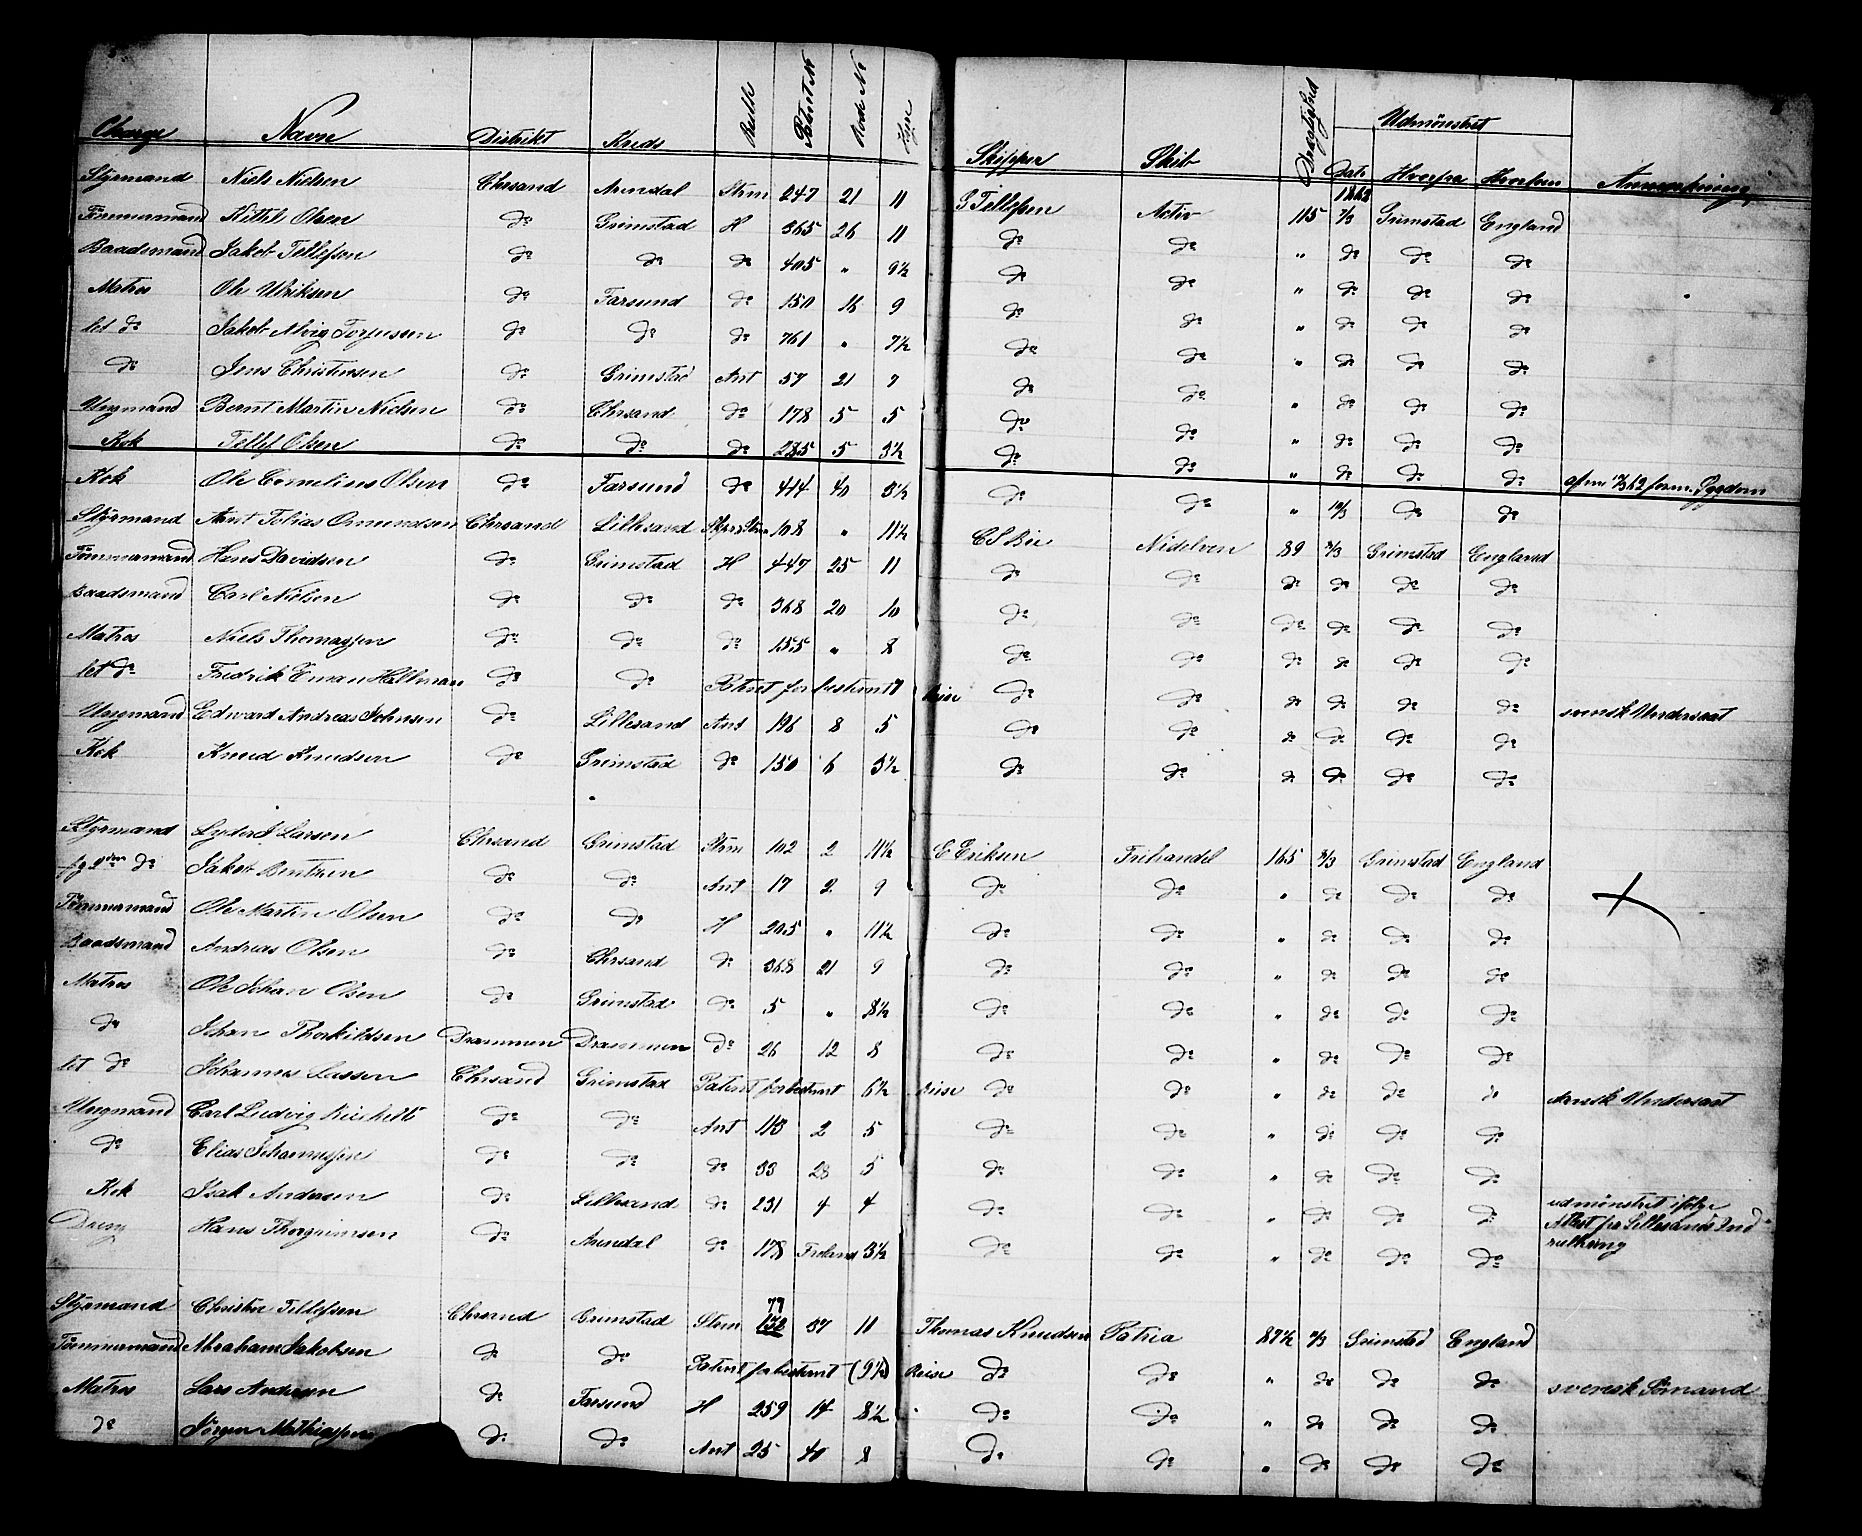 Charge Navn Distrikt Kreds Rulle Patent No Rode No Hyre Skipper Skib Drægtighed Udmønstret Anmærkning
Dato Hvorfra Hvorhen
1862
Styrmand Niels Nielsen Chrsand Arendal Strm 247 21 11 P Tellefsen Activ 115 7/3 Grimstad England
Tømmermand Kittil Olsen do Grimstad H 365 26 11 do do " do do do
Baadsmand Jakob Tellefsen do do do 405 " 9½ do do " do do do
Matros Ole Ulriksen do Farsund do 150 16 9 do do " do do do
let do Jakob Alvig Torjussen do do do 761 " 7½ do do " do do do
do Jens Christensen do Grimstad Ant 57 21 7 do do " do do do
Ungmand Bernt Martin Nielsen do Chrsand do 178 5 5 do do " do do do
Kok Tellef Olsen do do do 285 5 3½ do do " do do do
Kok Ole Cornelius Olsen do Farsund do 414 40 3½ do do " do do
Styrmand Arnt Tobias Osmundsen Chrsand Lillesand 108 " 11½ C S Bie Nidelven 89 Grimstad England
Tømmermand Hans Davidsen do Grimstad H 447 25 11 do do do do do do
Baadsmand Carl Nielsen do do do 368 20 10 do do do do do do
Matros Niels Thomassen do do do 155 " 8 do do do do do do
let do Fredrik Eman Hellman do do Patent for bestemt Reise do do do do do do svensk Undersaat
Ungmand Edward Andreas Johnsen do Lillesand Ant 196 8 5 do do do do do do
Kok Knud Knudsen do Grimstad do 150 6 3½ do do do do do do
Styrmand Lyder J Larsen Chrsand Grimstad Strm 102 2 11½ E Eriksen Frihandel 165 Grimstad England
do Jakob Bentsen do do Ant 17 2 9 do do " do do do
Tømmermand Ole Martin Olsen do do H 205 " 11½ do do " do do do
Baadsmand Andreas Olsen do Chrsand do 368 21 9 do do " do do do
Matros Ole Johan Olsen do Grimstad do 5 " 8½ do do " do do do
do Johan Thorkildsen Drammen Drammen do 26 12 8 do do " do do do
let do Johannes Lassen Chrsand Grimstad Patent for bestemt 6½ Reise do do " do do do dansk Undersaat
Ungmand Carl Ludvig Reichelt do do Ant 113 2 5 do do " do do do
do Elias Johannessen do do do 33 23 5 do do " do do do
Kok Isak Andersen do Lillesand do 231 4 4 do do " do do do udmønstret ifølge
Attest fra Lillesands Ind
rullering
Dreng Hans Thorgrimsen do Arendal do 178 Froland 3½ do do " do do do
Styrmand Christen Tellefsen Chrsand Grimstad Strm 79 138 37 11 Thomas Knudsen Patria 87½ Grimstad England
Tømmermand Abraham Jakobsen do do Patent for bestemt (9½) Reise do do " do do do svensk Sømand
Matros Lars Andersen do Farsund H 259 14 8½ do do " do do do
do Jörgen Mathiassen do do Ant 25 40 8 do do " do do do